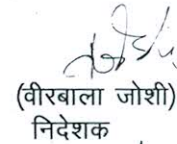 (वीरबाला जोशी)
निदेशक